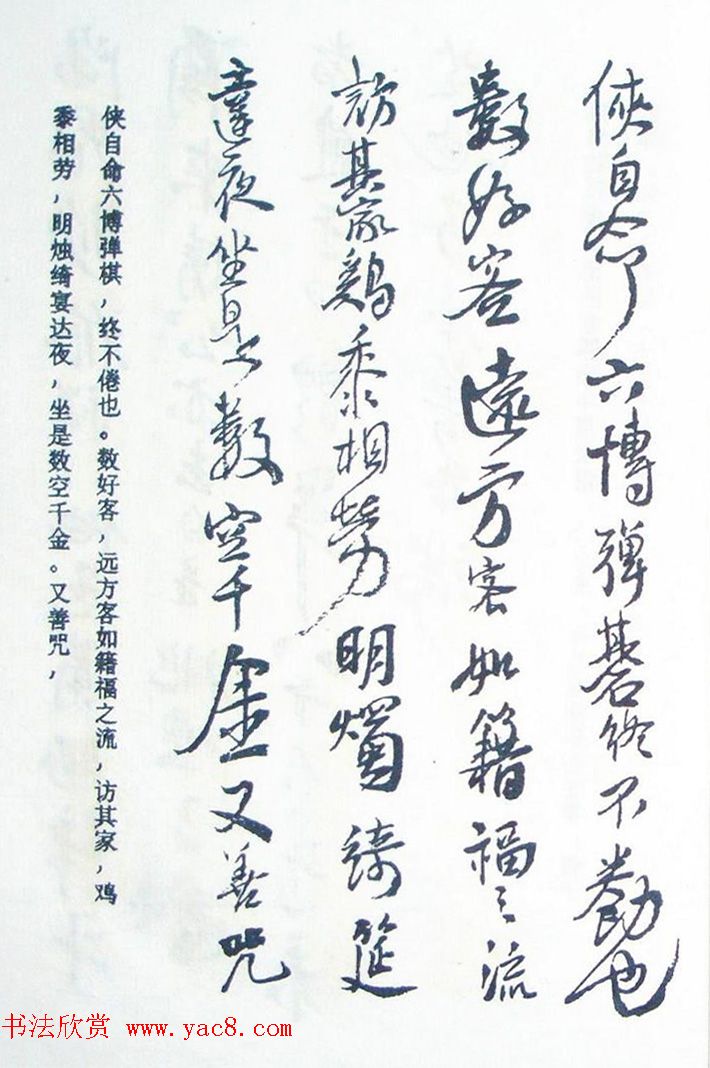 俠自命六博彈碁終不勌也
數好客遠方客如籍福之流
訪其家鷄黍相勞明燭綺筵
達夜坐是數空千金又善咒
侠自命六博弹棋，终不倦也。数好客，远方客如籍福之流，访其家，鸡
黍相劳，明烛绮宴达夜，坐是数空千金。又善咒，
书法欣赏 www.yac8.com